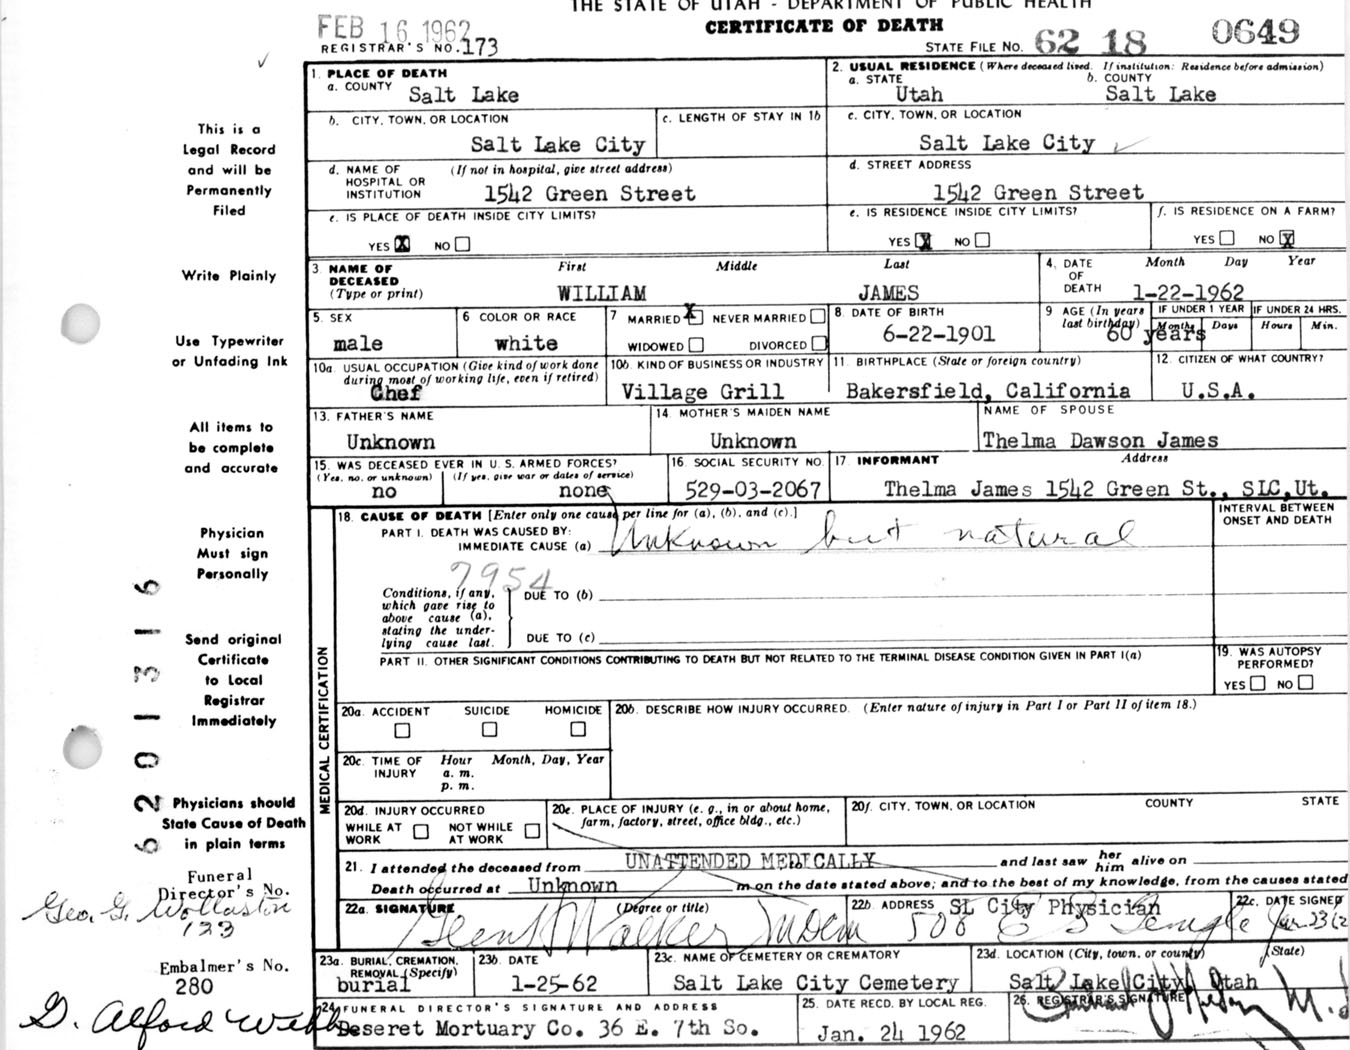 THE STATE OF UTAH - DEPARTMENT OF PUBLIC HEALTH
CERTIFICATE OF DEATH
FEB 16 1962
REGISTRAR'S NO. 173
STATE FILE NO. 62 18 0649
1. PLACE OF DEATH
a. COUNTY Salt Lake
2. USUAL RESIDENCE (Where deceased lived. If institution: Residence before admission)
a. STATE Utah b. COUNTY Salt Lake
b. CITY, TOWN, OR LOCATION Salt Lake City
c. LENGTH OF STAY IN 1b
c. CITY, TOWN, OR LOCATION Salt Lake City
d. NAME OF HOSPITAL OR INSTITUTION (If not in hospital, give street address) 1542 Green Street
d. STREET ADDRESS 1542 Green Street
e. IS PLACE OF DEATH INSIDE CITY LIMITS? YES X NO
e. IS RESIDENCE INSIDE CITY LIMITS? YES X NO
f. IS RESIDENCE ON A FARM? YES NO X
3. NAME OF DECEASED (Type or print) First Middle Last
WILLIAM JAMES
4. DATE OF DEATH Month Day Year
1-22-1962
5. SEX male
6. COLOR OR RACE white
7 MARRIED X NEVER MARRIED
WIDOWED DIVORCED
8. DATE OF BIRTH 6-22-1901
9 AGE (In years last birthday) 60 years
IF UNDER 1 YEAR Months Days
IF UNDER 24 HRS. Hours Min.
10a. USUAL OCCUPATION (Give kind of work done during most of working life, even if retired) Chef
10b. KIND OF BUSINESS OR INDUSTRY Village Grill
11. BIRTHPLACE (State or foreign country) Bakersfield, California
12. CITIZEN OF WHAT COUNTRY? U.S.A.
13. FATHER'S NAME Unknown
14. MOTHER'S MAIDEN NAME Unknown
NAME OF SPOUSE Thelma Dawson James
15. WAS DECEASED EVER IN U.S. ARMED FORCES?
(Yes, no, or unknown) (If yes, give war or dates of service)
no none
16. SOCIAL SECURITY NO. 529-03-2067
17. INFORMANT Address
Thelma James 1542 Green St., SLC,Ut.
MEDICAL CERTIFICATION
18. CAUSE OF DEATH [Enter only one cause per line for (a), (b), and (c).]
INTERVAL BETWEEN ONSET AND DEATH
PART I. DEATH WAS CAUSED BY:
IMMEDIATE CAUSE (a) Unknown but natural
7954
Conditions, if any, which gave rise to above cause (a), stating the underlying cause last.
DUE TO (b)
DUE TO (c)
PART II. OTHER SIGNIFICANT CONDITIONS CONTRIBUTING TO DEATH BUT NOT RELATED TO THE TERMINAL DISEASE CONDITION GIVEN IN PART I(a)
19. WAS AUTOPSY PERFORMED?
YES NO
20a. ACCIDENT SUICIDE HOMICIDE
20b. DESCRIBE HOW INJURY OCCURRED. (Enter nature of injury in Part I or Part II of item 18.)
20c. TIME OF INJURY Hour Month, Day, Year
a. m.
p. m.
20d. INJURY OCCURRED
WHILE AT WORK NOT WHILE AT WORK
20e. PLACE OF INJURY (e. g., in or about home, farm, factory, street, office bldg., etc.)
20f. CITY, TOWN, OR LOCATION COUNTY STATE
21. I attended the deceased from UNATTENDED MEDICALLY and last saw her him alive on
Death occurred at Unknown m on the date stated above; and to the best of my knowledge, from the causes stated
22a. SIGNATURE (Degree or title)
Walker
22b. ADDRESS SL City Physician
22c. DATE SIGNED
23a. BURIAL, CREMATION, REMOVAL (Specify) burial
23b. DATE 1-25-62
23c. NAME OF CEMETERY OR CREMATORY Salt Lake City Cemetery
23d. LOCATION (City, town, or county) (State)
Salt Lake City, Utah
24. FUNERAL DIRECTOR'S SIGNATURE AND ADDRESS
Deseret Mortuary Co. 36 E. 7th So.
25. DATE RECD. BY LOCAL REG.
Jan. 24 1962
26. REGISTRAR'S SIGNATURE
This is a
Legal Record
and will be
Permanently
Filed
Write Plainly
Use Typewriter
or Unfading Ink
All items to
be complete
and accurate
Physician
Must sign
Personally
Send original
Certificate
to Local
Registrar
Immediately
Physicians should
State Cause of Death
in plain terms
62 01316
Funeral
Director's No.
Geo. G. Wollaston
133
Embalmer's No.
280
G. Alford Webb